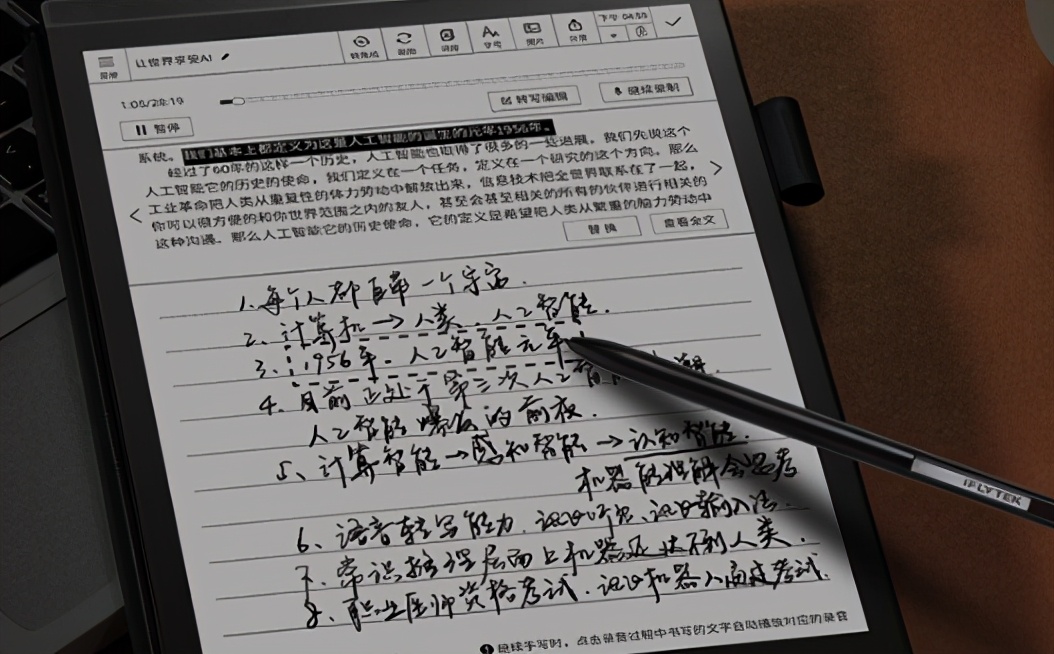 让世界享受AI
下午 04:55
1:08/28:19
转写编辑
继续录制
暂停
系统。我们基本上都定义为这是人工智能的诞生的元年1956年。
经过了60年的这样一个历史，人工智能也取得了很多的一些进展，我们先说这个
人工智能它的历史的使命，我们定义在一个任务，定义在一个研究的这个方向，那么
工业革命把人类从重复性的体力劳动中解放出来，信息技术把全世界联系在了一起，
你可以很方便的和你世界范围之内的友人，甚至会甚至相关的所有的伙伴进行相关的
这种沟通。那么人工智能它的历史使命，它的定义是希望把人类从繁重的脑力劳动中
替换
查看全文
1、每个人都自带一个宇宙.
2、计算机→人类、人工智能.
3、1956年. 人工智能元年
4、目前正处于第三次人工智
人工智能爆发的前夜.
5、计算智能→感知智能→认知智能.
机器能理解会思考
6、语音转写能力. 讯飞听见、讯飞输入法.
7、常识推理层面上机器还达不到人类.
8、职业医师资格考试. 讯飞机器人高过考试.
iFLYTEK